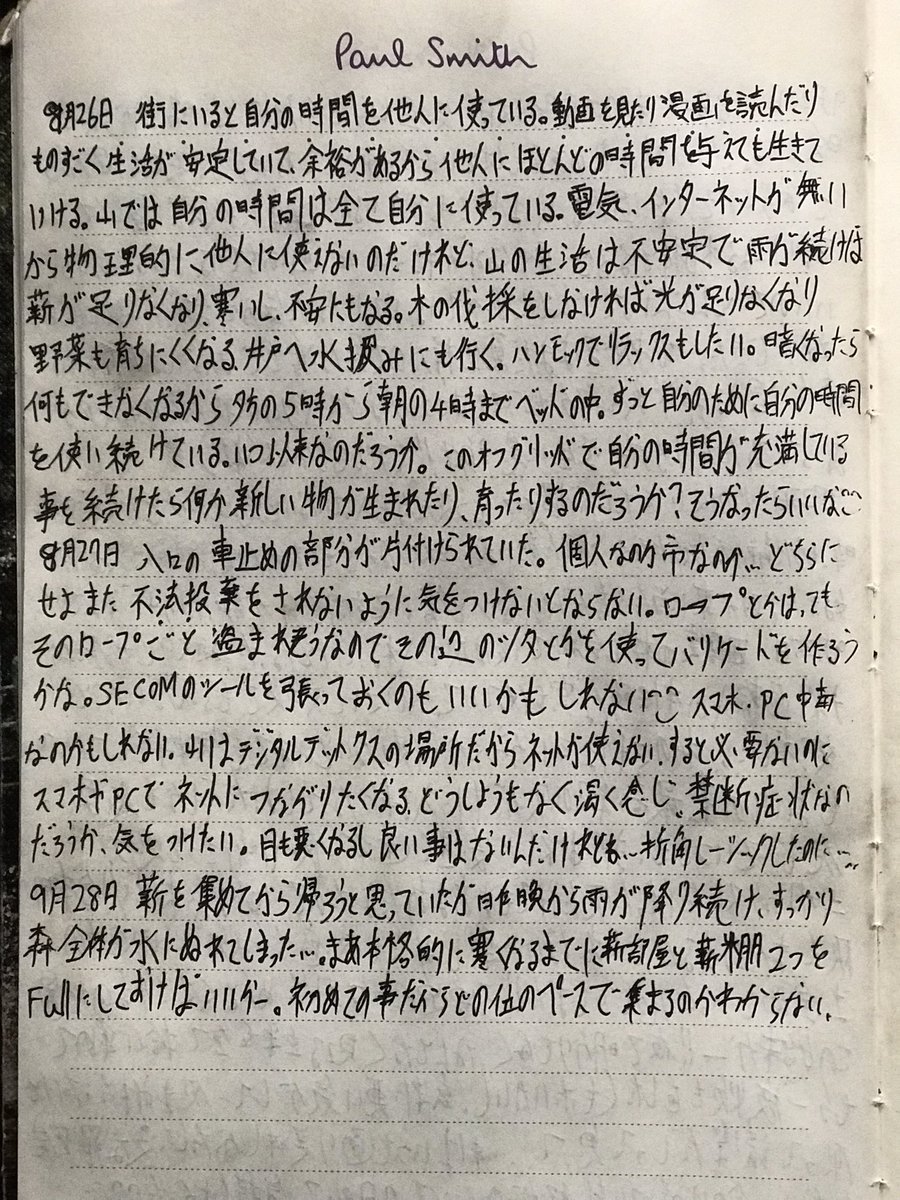 Paul Smith
9月26日 街にいると自分の時間を他人に使っている。動画を見たり漫画を読んだり
ものすごく生活が安定していて、余裕があるから他人にほとんどの時間を与えても生きて
いける。山では自分の時間は全て自分に使っている。電気、インターネットが無い
から物理的に他人に使えないのだけれど、山の生活は不安定で雨が続けば
薪が足りなくなり、寒いし、不安にもなる。木の伐採をしなければ光が足りなくなり
野菜も育ちにくくなる、井戸へ水汲みにも行く。ハンモックでリラックスもしたい。暗くなったら
何もできなくなるから夕方の5時から朝の4時までベッドの中。ずっと自分のために自分の時間
を使い続けている。いつ以来なのだろうか。このオフグリッドで自分の時間が充満している
事を続けたら何か新しい物が生まれたり、育ったりするのだろうか?そうなったらいいな
9月27日 入口の車止めの部分が片付けられていた。個人なのか市なのか…どちらに
せよまた不法投棄をされないように気をつけないとならない。ロープとかは、ても
そのロープごと盗まれそうなのでその辺のツタとかを使ってバリケードを作ろう
かな。SECOMのシールを張っておくのもいいかもしれない スマホ・PC中毒
なのかもしれない。山はデジタルデトックスの場所だからネットが使えない、すると必要ないのに
スマホやPCでネットにつながりたくなる、どうしようもなく渇く感じ。禁断症状なの
だろうか、気をつけたい。目も悪くなるし良い事はないんだけれども…折角レーシックしたのに…
9月28日 薪を集めてから帰ろうと思っていたが昨晩から雨が降り続け、すっかり
森全体が水にぬれてしまった…。まあ本格的に寒くなるまでに薪部屋と薪棚2つを
Fullにしておけばいいかー。初めての事だからどの位のペースで集まるのかわからない。